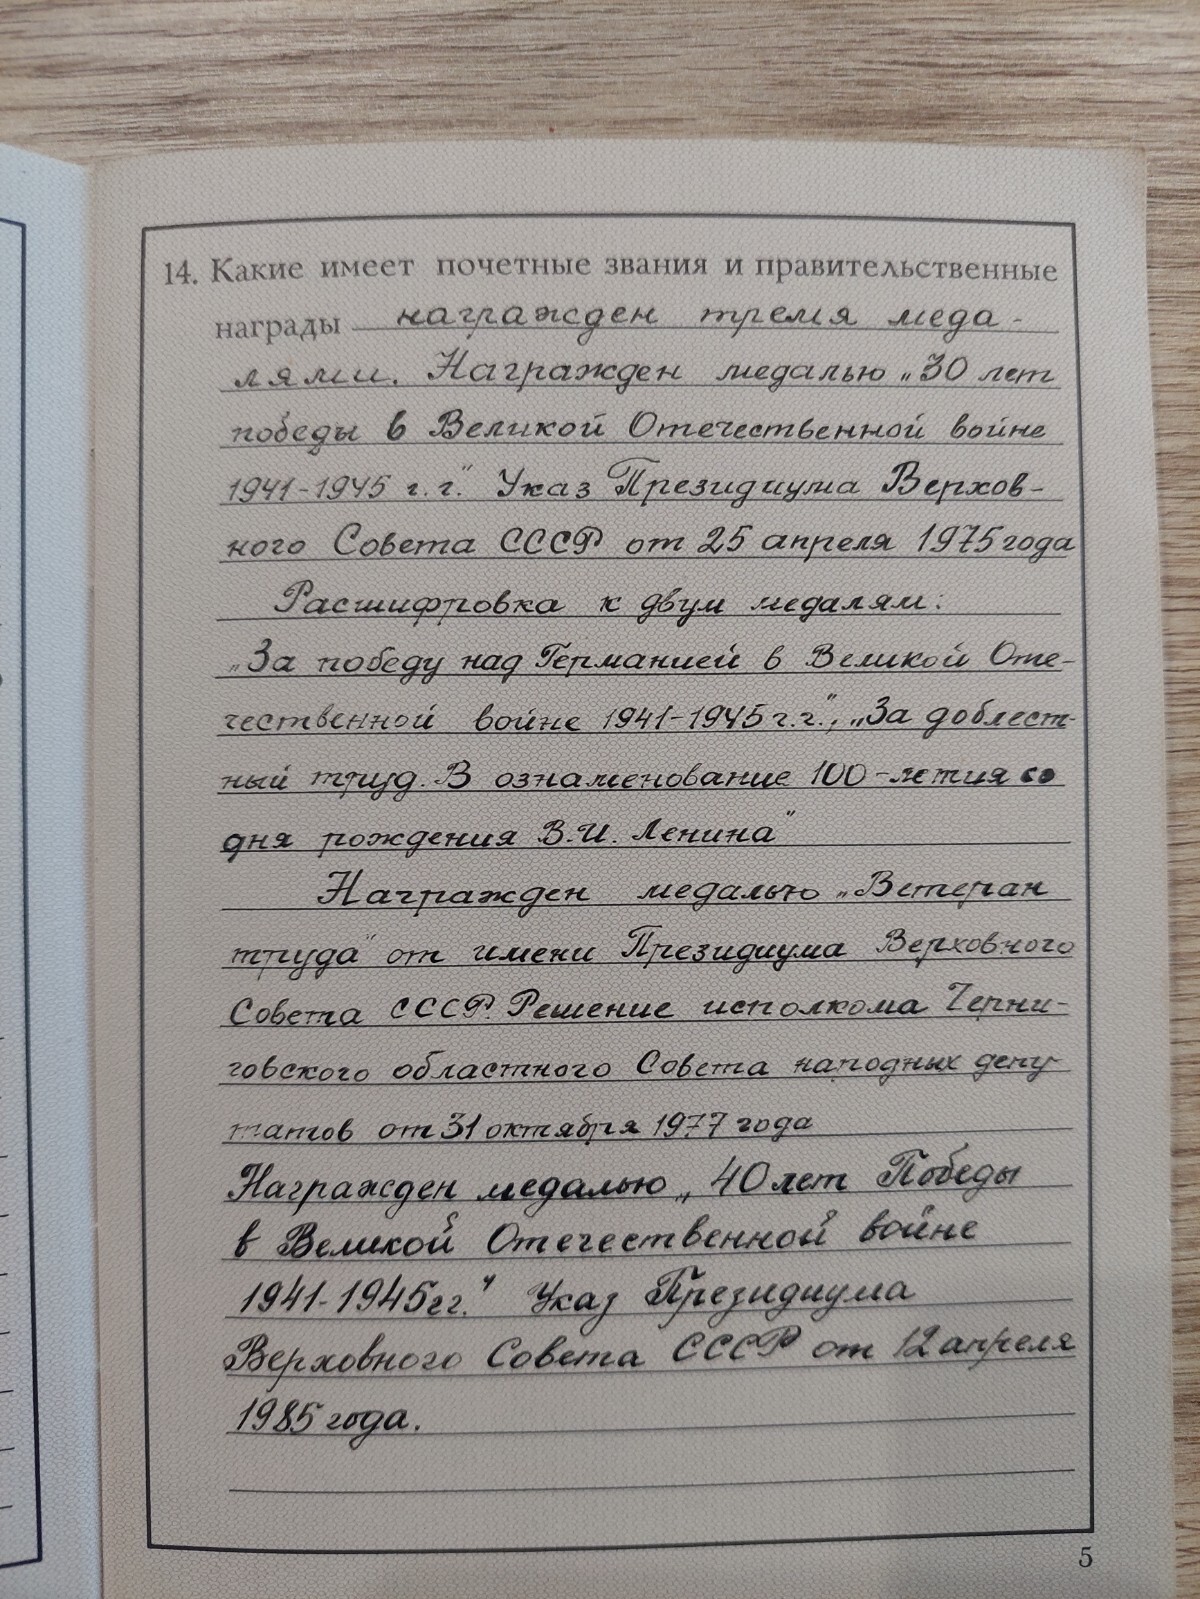 14. Какие имеет почетные звания и правительственные
награды награжден тремя меда-
лями. Награжден медалью „30 лет
победы в Великой Отечественной войне
1941-1945 г.г." Указ Президиума Верхов-
ного Совета СССР от 25 апреля 1975 года
Расшифровка к двум медалям:
„За победу над Германией в Великой Оте-
чественной войне 1941-1945 г.г.", „За доблест-
ный труд. В ознаменование 100-летия со
дня рождения В.И. Ленина"
Награжден медалью „Ветеран
труда" от имени Президиума Верховного
Совета СССР. Решение исполкома Черни-
говского областного Совета народных депу-
татов от 31 октября 1977 года
Награжден медалью „40 лет Победы
в Великой Отечественной войне
1941-1945 гг." Указ Президиума
Верховного Совета СССР от 12 апреля
1985 года.
5